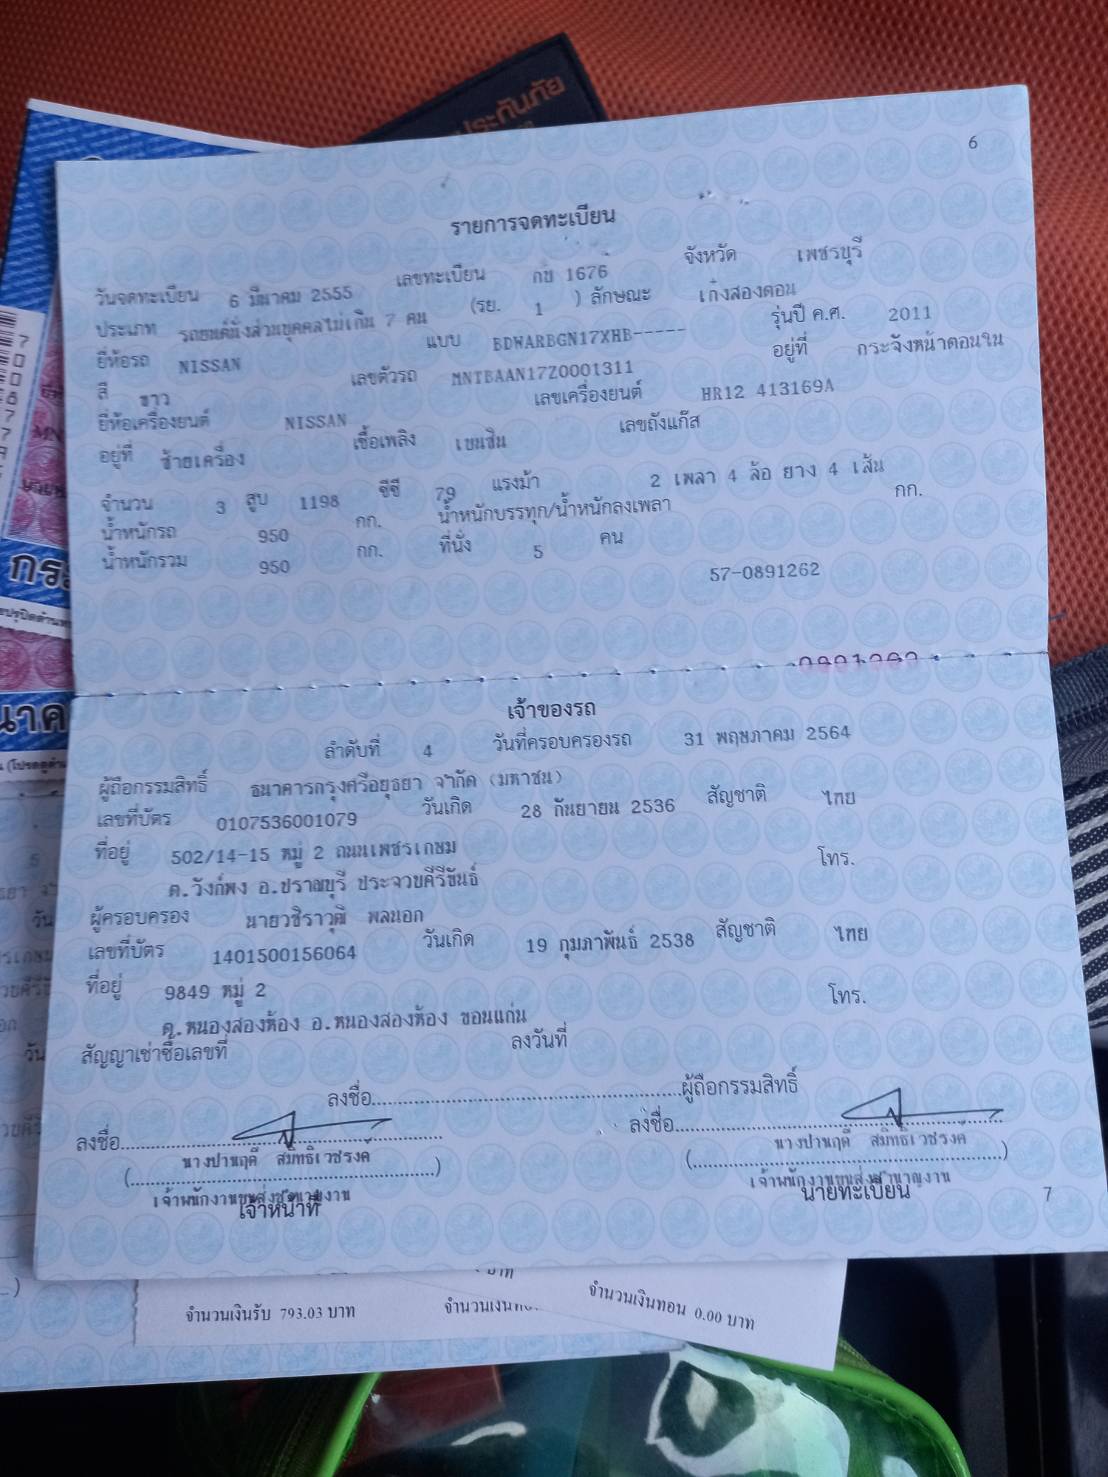 ประกันภัย
6
รายการจดทะเบียน
วันจดทะเบียน 6 มีนาคม 2555 เลขทะเบียน กบ 1676 จังหวัด เพชรบุรี
ประเภท รถยนต์นั่งส่วนบุคคลไม่เกิน 7 คน (รย. 1 ) ลักษณะ เก๋งสองตอน
ยี่ห้อรถ NISSAN แบบ BDWARBGN17XHB----- รุ่นปี ค.ศ. 2011
สี ขาว เลขตัวรถ MNTBAAN17Z0001311 อยู่ที่ กระจังหน้าตอนใน
ยี่ห้อเครื่องยนต์ NISSAN เลขเครื่องยนต์ HR12 413169A
อยู่ที่ ซ้ายเครื่อง เชื้อเพลิง เบนซิน เลขถังแก๊ส
จำนวน 3 สูบ 1198 ซีซี 79 แรงม้า 2 เพลา 4 ล้อ ยาง 4 เส้น
น้ำหนักรถ 950 กก. น้ำหนักบรรทุก/น้ำหนักลงเพลา กก.
น้ำหนักรวม 950 กก. ที่นั่ง 5 คน
57-0891262
เจ้าของรถ
ลำดับที่ 4 วันที่ครอบครองรถ 31 พฤษภาคม 2564
ผู้ถือกรรมสิทธิ์ ธนาคารกรุงศรีอยุธยา จำกัด (มหาชน)
เลขที่บัตร 0107536001079 วันเกิด 28 กันยายน 2536 สัญชาติ ไทย
ที่อยู่ 502/14-15 หมู่ 2 ถนนเพชรเกษม โทร.
ต.วังก์พง อ.ปราณบุรี ประจวบคีรีขันธ์
ผู้ครอบครอง นายวชิราวุฒิ พลนอก
เลขที่บัตร 1401500156064 วันเกิด 19 กุมภาพันธ์ 2538 สัญชาติ ไทย
ที่อยู่ 9849 หมู่ 2 โทร.
ต.หนองสองห้อง อ.หนองสองห้อง ขอนแก่น
สัญญาเช่าซื้อเลขที่ ลงวันที่
ลงชื่อ........................................ผู้ถือกรรมสิทธิ์
ลงชื่อ........................................ ลงชื่อ........................................
เจ้าหน้าที่ นายทะเบียน
7
จำนวนเงินรับ 793.03 บาท จำนวนเงินทอน 0.00 บาท